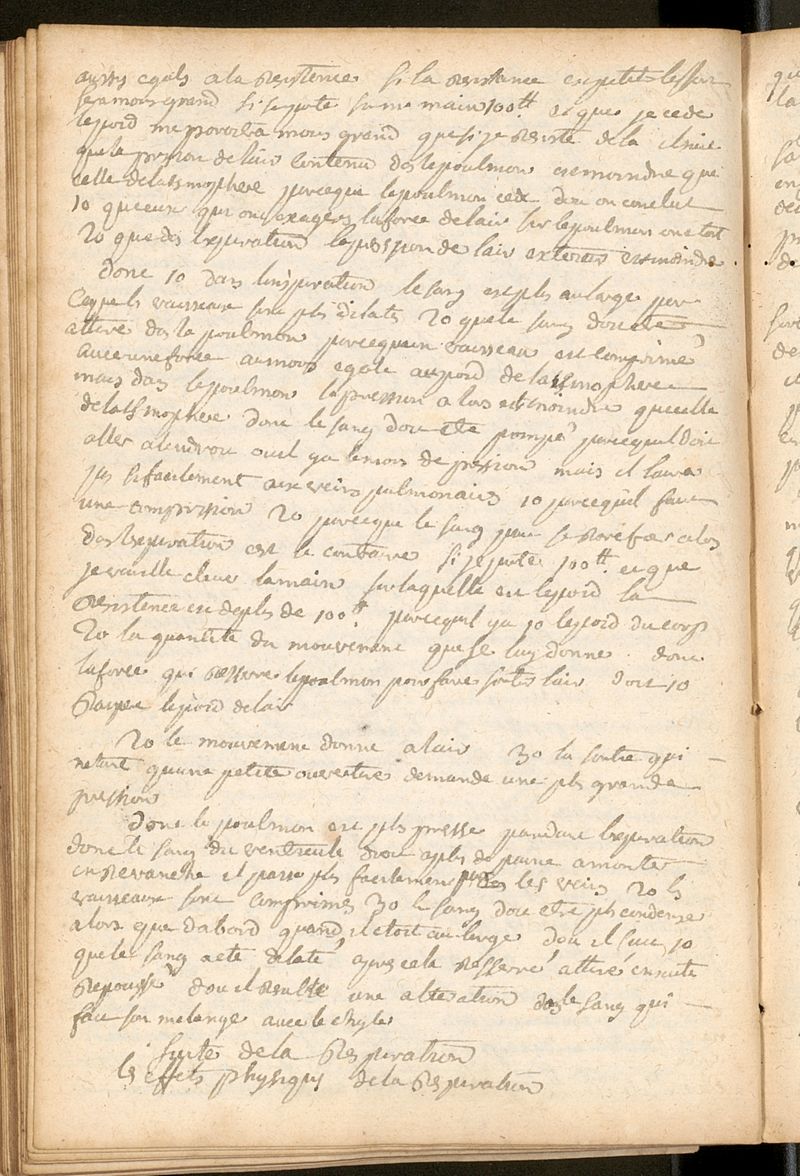 egals a la resistence si la resistance est petite leffort
sera moins grand si je porte sur ma main 100 ₶ et que je cede
le poid me paroitra moins grand que si je resiste de la il suit
que la pression de lair contenu ds le poulmon est moindre que
celle de latsmosphere parceque le poulmon cede dou on conclut
10 que ceux qui ont exageré la force de lair sur le poulmon ont tort
20 que ds lexpiration la pression de lair exterieur est moindre
donc 10 dans linspiration le sang est plus au large par
ce que ls vaisseaux sont pls dilatés 20 que le sang doit etre
attiré ds le poulmon parcequun vaisseau est comprimé
avec une force au moins egale au poid de latsmosphere
mais dans le poulmon la pression alors est moindre que celle
de latsmosphere donc le sang doit etre pompé parcequil doit
aller a lendroit ou il y a le moins de pression mais il laura
pas si facilement aux veines pulmonaires 10 parcequil faut
une compression 20 parceque le sang peut se rarefier alors
dans lexpiration cest le contraire si je porte 100 ₶ et que
je veuille elever la main sur laquelle est le poid la
resistence est de plus de 100 ₶ parcequil y a 10 le poid du corps
20 la quantité du mouvement que je luy donne donc
la force qui resserre le poulmon pour faire sortir lair doit 10
le poid de lair
20 le mouvement donné a lair 30 la sortie qui
netant quune petite ouverture demande une pls grande
pression
donc le poulmon est pls pressé pendant lexpiration
donc le sang du ventricule droit a pls de peine a monter
en revanche il passe pls facilement dans les veines 20 ls
vaisseaux sont comprimés 30 le sang doit etre pls condensé
alors que dabord quand il etoit au large dou il suit 10
que le sang a eté dilaté apres cela resserré attiré ensuite
repoussé dou il resulte une alteration ds le sang qui
fait son melange avec le chyle
suite de la respiration
les effets physiques de la respiration